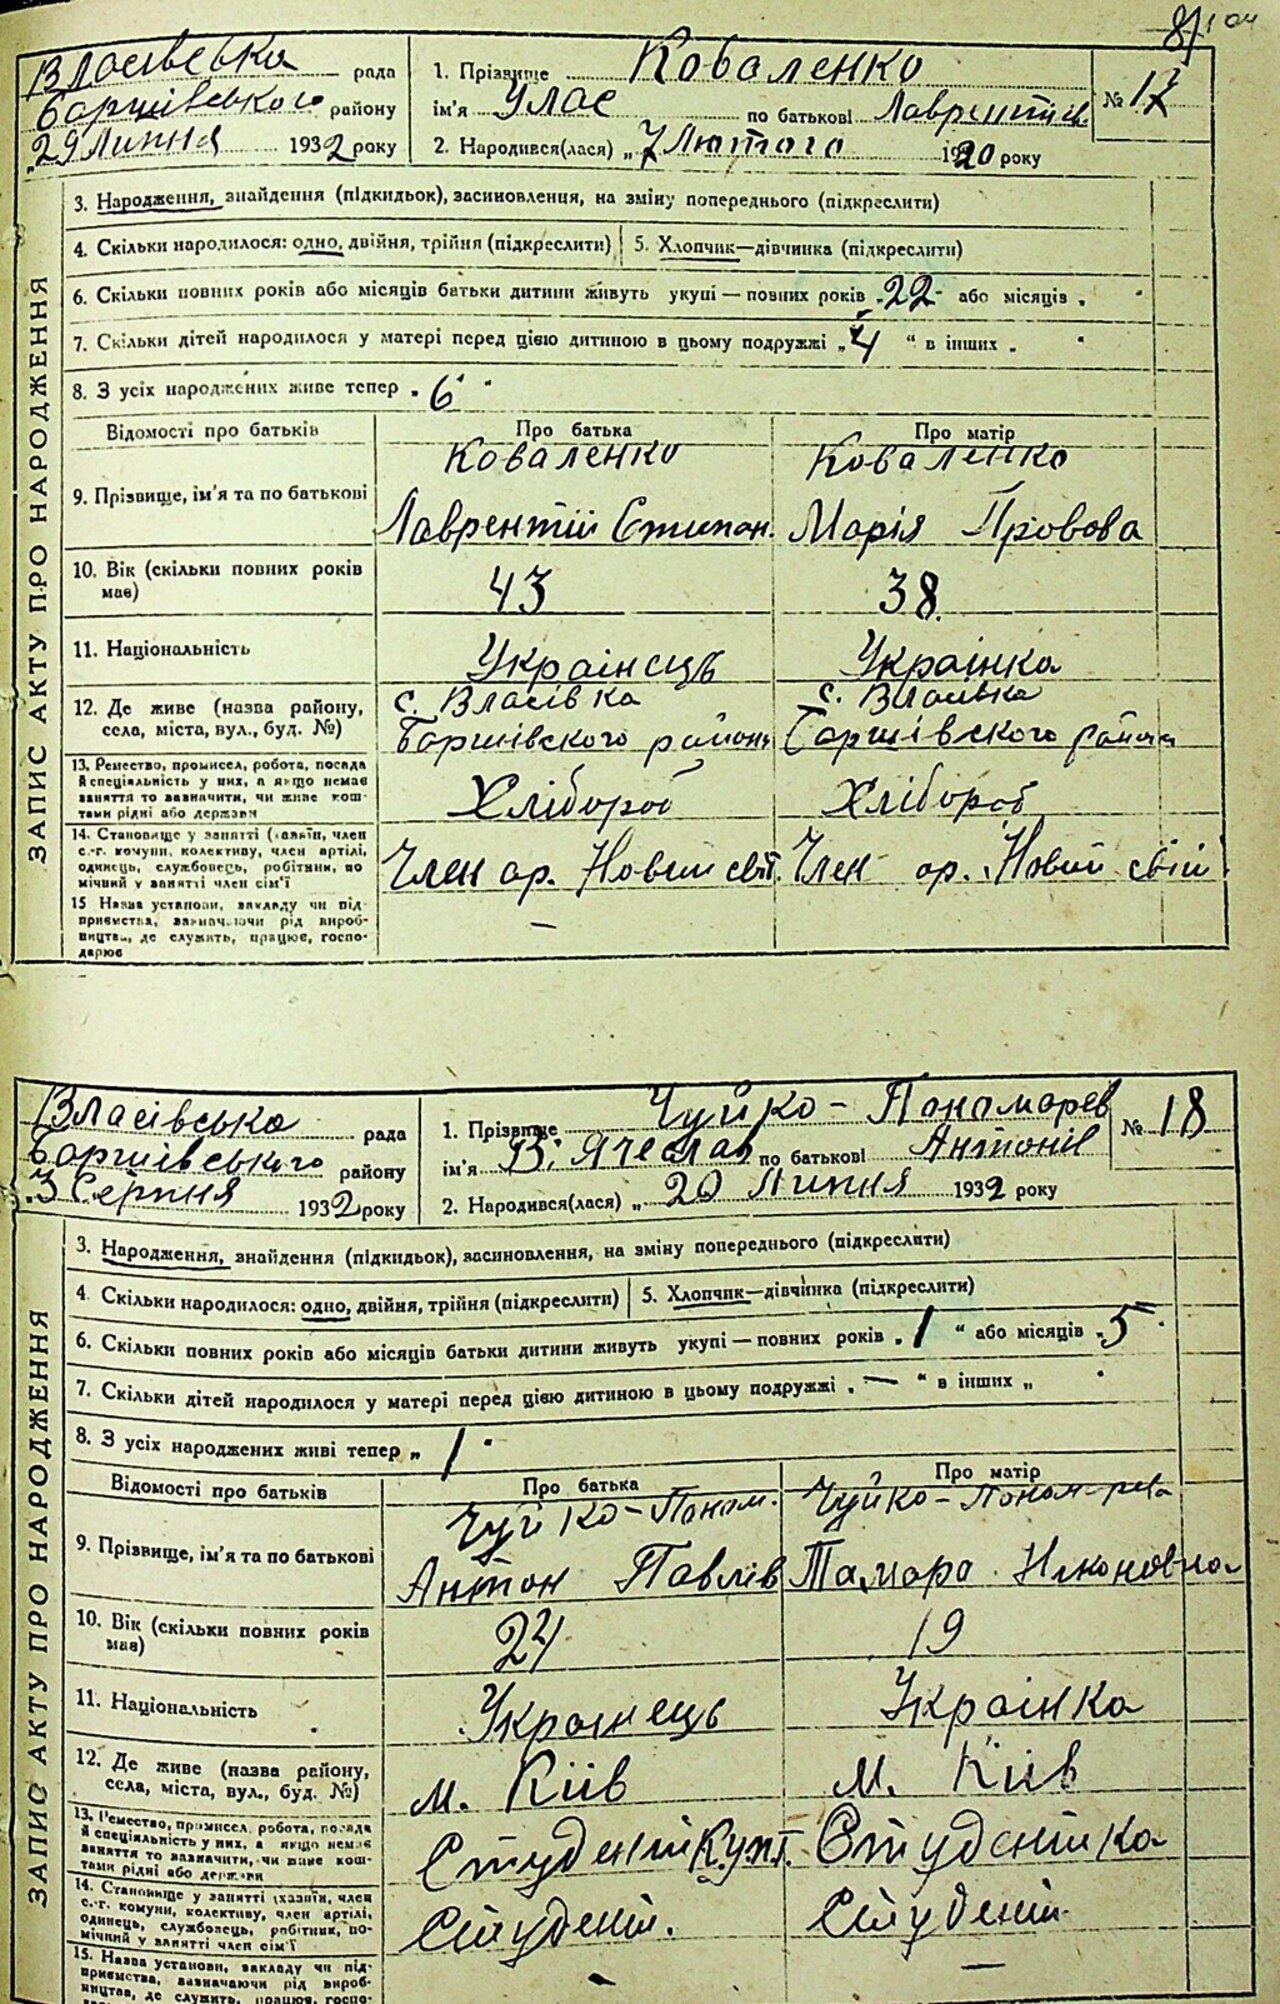 Власівська рада
Баришівського району
„29 Липня 1932 року
1. Прізвище Коваленко
ім'я Улас по батькові Лаврентіїв.
2. Народився(лася) „7 Лютого 1920 року
№ 17
ЗАПИС АКТУ ПРО НАРОДЖЕННЯ
3. Народження, знайдення (підкидьок), засиновлення, на зміну попереднього (підкреслити)
4. Скільки народилося: одно, двійня, трійня (підкреслити) 5. Хлопчик—дівчинка (підкреслити)
6. Скільки повних років або місяців батьки дитини живуть укупі — повних років „22" або місяців „
7. Скільки дітей народилося у матері перед цією дитиною в цьому подружжі „4" в інших „
8. З усіх народжених живе тепер „6"
Відомості про батьків Про батька Про матір
Коваленко Коваленко
9. Прізвище, ім'я та по батькові Лаврентій Степан. Марія Провова
10. Вік (скільки повних років має) 43 38
11. Національність Украінець Украінка
с. Власівка с. Власівка
12. Де живе (назва району, села, міста, вул., буд. №) Баришівского району Баришівского району
13. Ремество, промисел, робота, посада
й спеціальність у них, а якщо немає
заняття то зазначити, чи живе кош-
тами рідні або держави
Хлібороб Хлібороб
14. Становище у занятті (хазяїн, член
с.-г. комуни, колективу, член артілі,
одинець, службовець, робітник, по
мічний у занятті член сім'ї
Член ар. Новий світ. Член ар. Новий світ
15 Назва установи, закладу чи під-
приємства, зазначаючи рід вироб-
ництва, де служить, працює, госпо-
дарює
—
Власівська рада
Баришівського району
„3 Серпня 1932 року
1. Прізвище Чуйко - Пономарев
ім'я Вячеслав по батькові Антонів
2. Народився(лася) „20 Липня 1932 року
№ 18
ЗАПИС АКТУ ПРО НАРОДЖЕННЯ
3. Народження, знайдення (підкидьок), засиновлення, на зміну попереднього (підкреслити)
4. Скільки народилося: одно, двійня, трійня (підкреслити) 5. Хлопчик—дівчинка (підкреслити)
6. Скільки повних років або місяців батьки дитини живуть укупі — повних років „1" або місяців „5"
7. Скільки дітей народилося у матері перед цією дитиною в цьому подружжі „—" в інших „
8. З усіх народжених живі тепер „1"
Відомості про батьків Про батька Про матір
Чуйко - Поном. Чуйко - Пономарева
9. Прізвище, ім'я та по батькові Антон Павлів Тамара Никоновна
10. Вік (скільки повних років має) 24 19
11. Національність Украінець Украінка
12. Де живе (назва району, села, міста, вул., буд. №) м. Київ м. Київ
13. Ремество, промисел, робота, посада
й спеціальність у них, а якщо немає
заняття то зазначити, чи живе кош-
тами рідні або держави
Студент Студентка
14. Становище у занятті (хазяїн, член
с.-г. комуни, колективу, член артілі,
одинець, службовець, робітник, по-
мічний у занятті член сім'ї
Студент. Студент
15. Назва установи, закладу чи під-
приємства, зазначаючи рід вироб-
ництва, де служить, працює, госпо-
— —